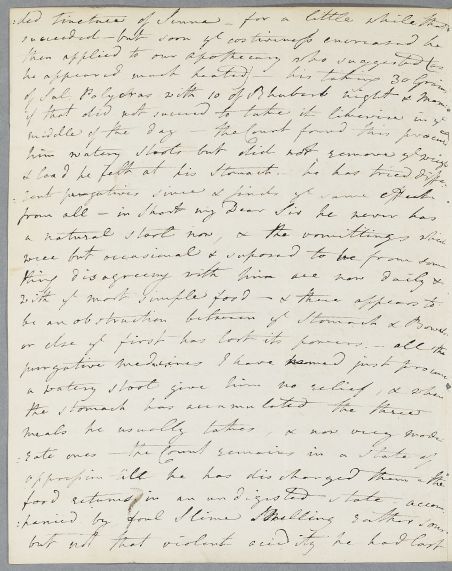 :ded tincture of Senna - for a little while that
succeeded - but soon ye costiveness encreased he
then applied to our apothecary who suggested (as
he appeared much heated) his taking 30 Grains
of Sal Polycras with 10 of Rhubarb night & morn
if that did not succeed to take it likewise in ye
middle of the day - the Count found this procured
him watery stools but did not remove ye weight
& load he felt at his Stomach - he has tried diffe
:rent purgatives since & finds ye same effect
from all - in short my Dear Sir he never has
a natural stool now, & the vomittings which
were but occasional & suposed to be from some
thing disagreeing with him are now daily &
with ye most simple food - & there appears to
be an obstruction between ye Stomach & Bowels
or else ye first has lost its powers. - all the
purgative medicines I have named just procure
a watery stool give him no relief, & when
the stomach has accumulated the three
meals he usually takes, & now very mode
:rate ones - the Count remains in a State of
oppression till he has discharged them - the
food returns in an undigested state, accom
:panied by foul Slime Smelling rather sour
but not that violent acidity he had last